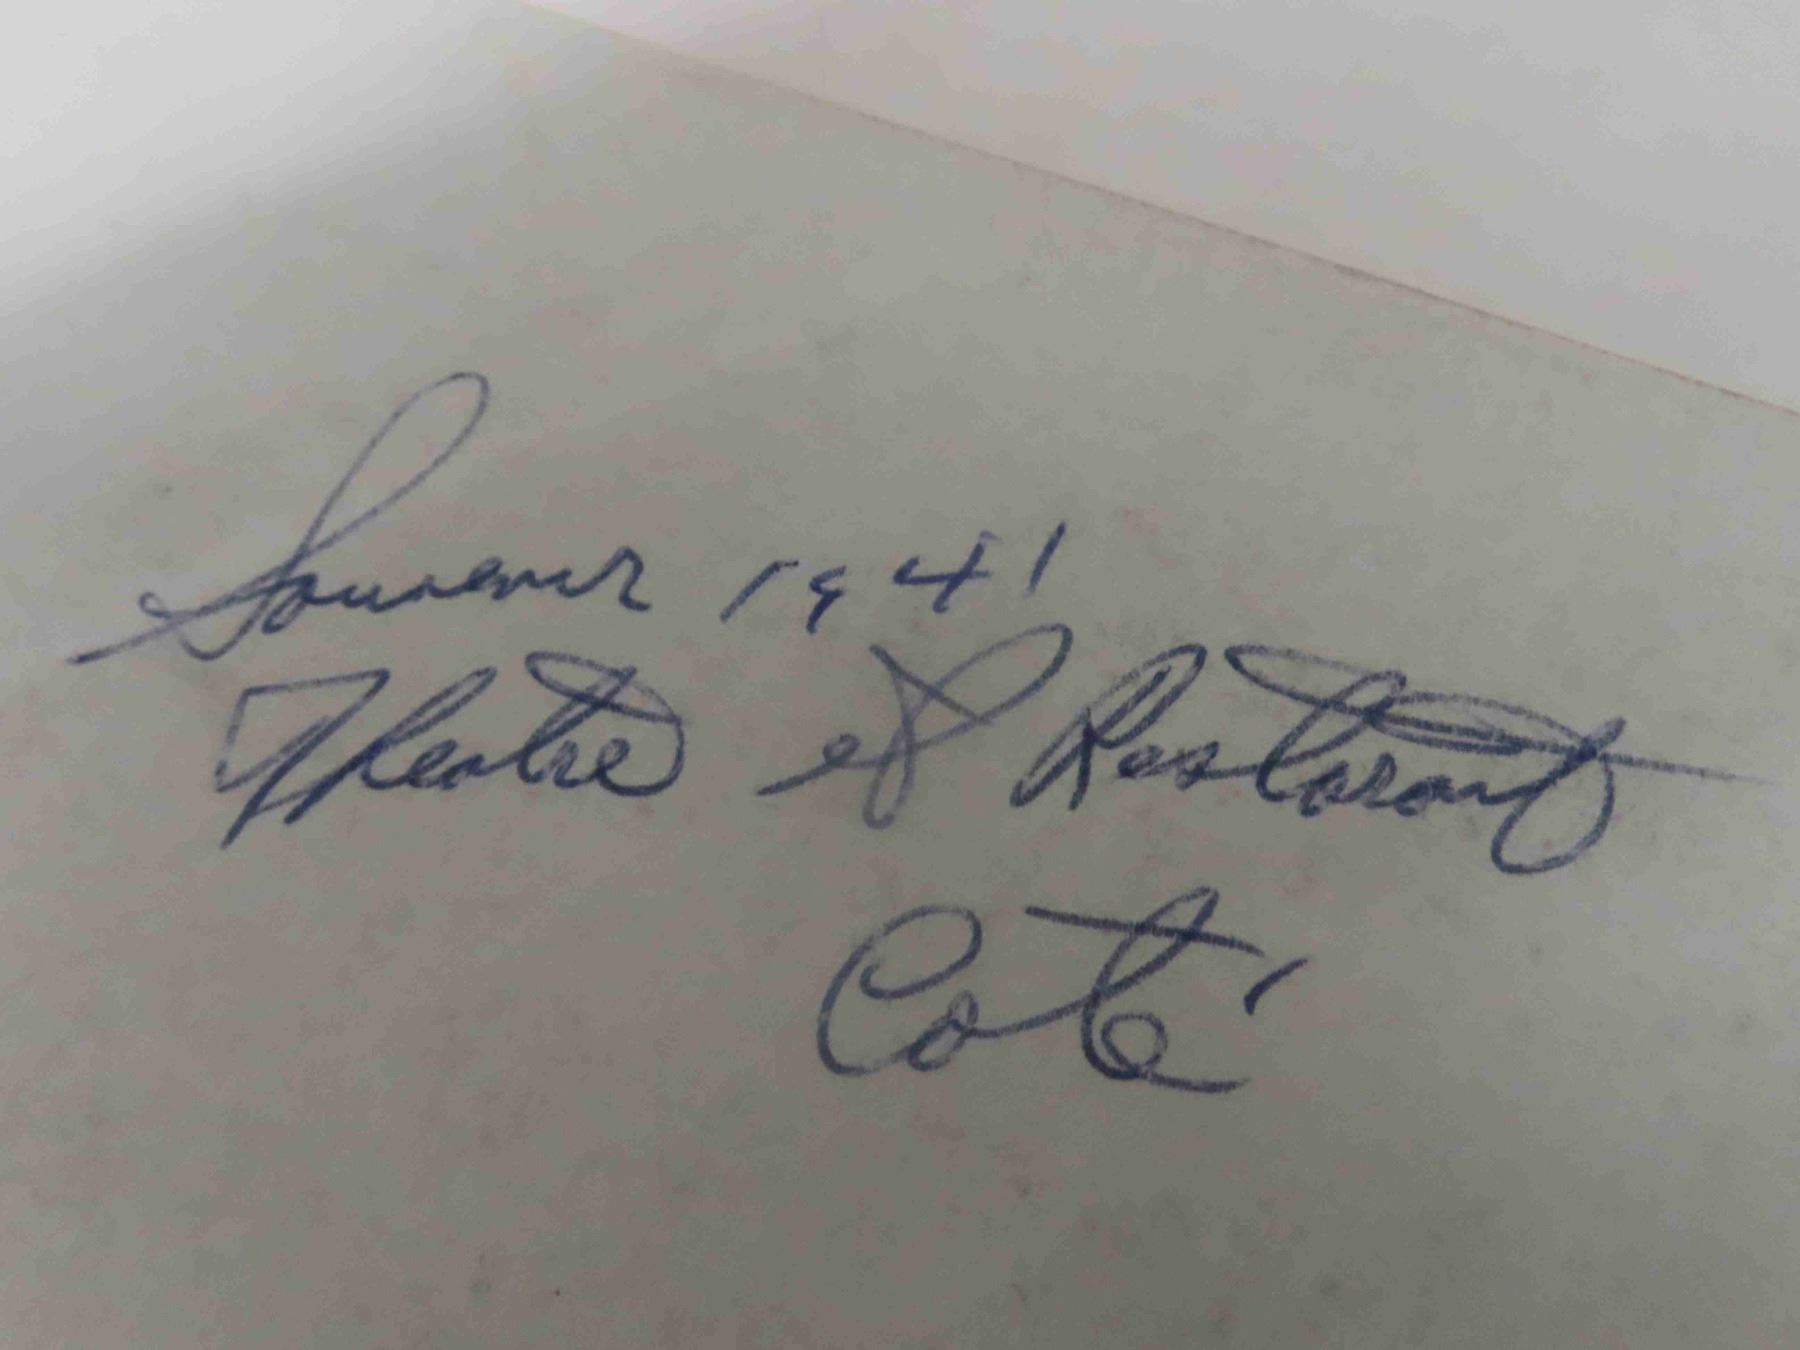 Souvenir 1941
Theatre et Restorant
Coté